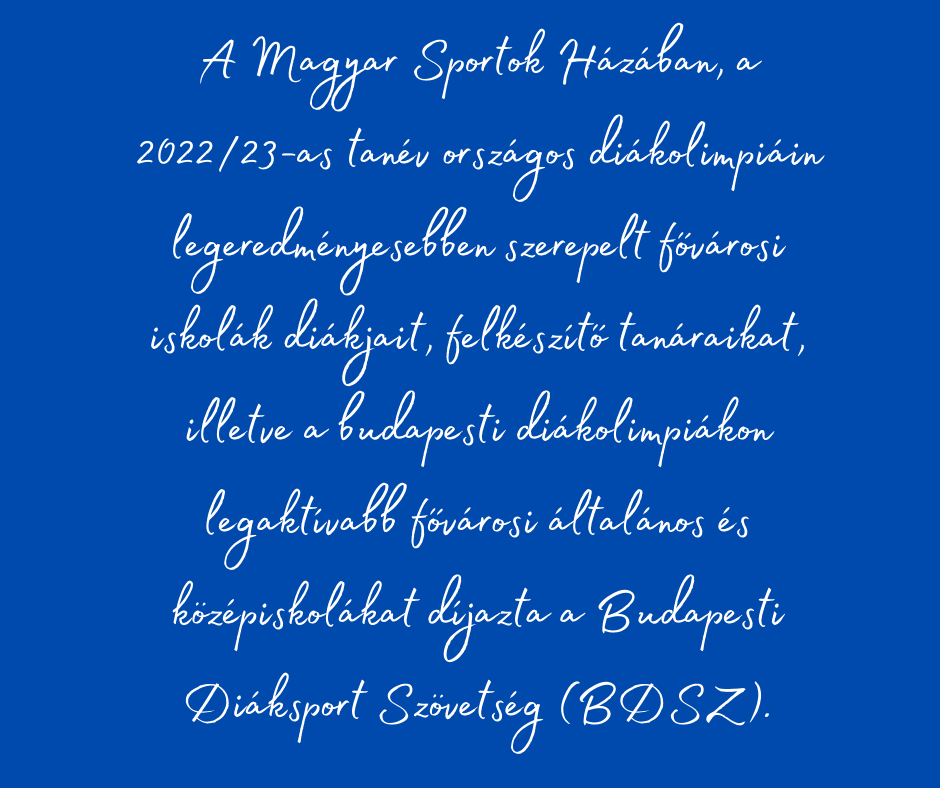 A Magyar Sportok Házában, a
2022/23-as tanév országos diákolimpiáin
legeredményesebben szerepelt fővárosi
iskolák diákjait, felkészítő tanáraikat,
illetve a budapesti diákolimpiákon
legaktívabb fővárosi általános és
középiskolákat díjazta a Budapesti
Diáksport Szövetség (BDSZ).